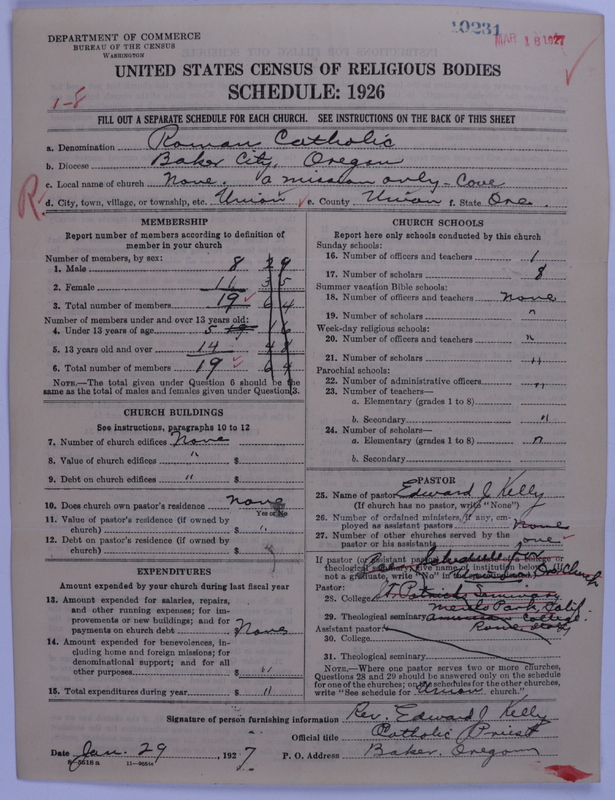 DEPARTMENT OF COMMERCE
BUREAU OF THE CENSUS
WASHINGTON
10231
MAR 18 1927
UNITED STATES CENSUS OF RELIGIOUS BODIES
SCHEDULE: 1926
1-8
FILL OUT A SEPARATE SCHEDULE FOR EACH CHURCH. SEE INSTRUCTIONS ON THE BACK OF THIS SHEET
a. Denomination Roman Catholic
b. Diocese Baker City, Oregon
c. Local name of church None, a mission only - Cove
R.
d. City, town, village, or township, etc. Union e. County Union f. State Ore.
MEMBERSHIP
Report number of members according to definition of
member in your church
Number of members, by sex:
1. Male 8 29
2. Female 11 35
3. Total number of members 19 64
Number of members under and over 13 years old:
4. Under 13 years of age 5 19 16
5. 13 years old and over 14 48
6. Total number of members 19 64
NOTE.—The total given under Question 6 should be the
same as the total of males and females given under Question 3.
CHURCH BUILDINGS
See instructions, paragraphs 10 to 12
7. Number of church edifices None
8. Value of church edifices " $
9. Debt on church edifices " $
10. Does church own pastor's residence none
Yes or No
11. Value of pastor's residence (if owned by
church) $ "
12. Debt on pastor's residence (if owned by
church) $ "
EXPENDITURES
Amount expended by your church during last fiscal year
13. Amount expended for salaries, repairs,
and other running expenses; for im-
provements or new buildings; and for
payments on church debt $ None
14. Amount expended for benevolences, in-
cluding home and foreign missions; for
denominational support; and for all
other purposes $ "
15. Total expenditures during year $ "
CHURCH SCHOOLS
Report here only schools conducted by this church
Sunday schools:
16. Number of officers and teachers 1
17. Number of scholars 8
Summer vacation Bible schools:
18. Number of officers and teachers none
19. Number of scholars "
Week-day religious schools:
20. Number of officers and teachers "
21. Number of scholars "
Parochial schools:
22. Number of administrative officers "
23. Number of teachers—
a. Elementary (grades 1 to 8)
b. Secondary "
24. Number of scholars—
a. Elementary (grades 1 to 8) "
b. Secondary
PASTOR
25. Name of pastor Edward J. Kelly
(If church has no pastor, write "None")
26. Number of ordained ministers, if any, em-
ployed as assistant pastors None
27. Number of other churches served by the
pastor or his assistants one
If pastor (or assistant pastor) college or
theological seminary, give name of institution below
not a graduate, write "No" in Church
Pastor: schedule for
28. College St Patricks Seminary
Menlo Park Calif.
29. Theological seminary American College
Assistant pastor: Rome Italy
30. College
31. Theological seminary
NOTE.—Where one pastor serves two or more churches,
Questions 28 and 29 should be answered only on the schedule
for one of the churches; on the schedules for the other churches,
write "See schedule for Union church."
Signature of person furnishing information Rev. Edward J Kelly
Official title Catholic Priest
Date Jan. 29, 1927 P. O. Address Baker, Oregon